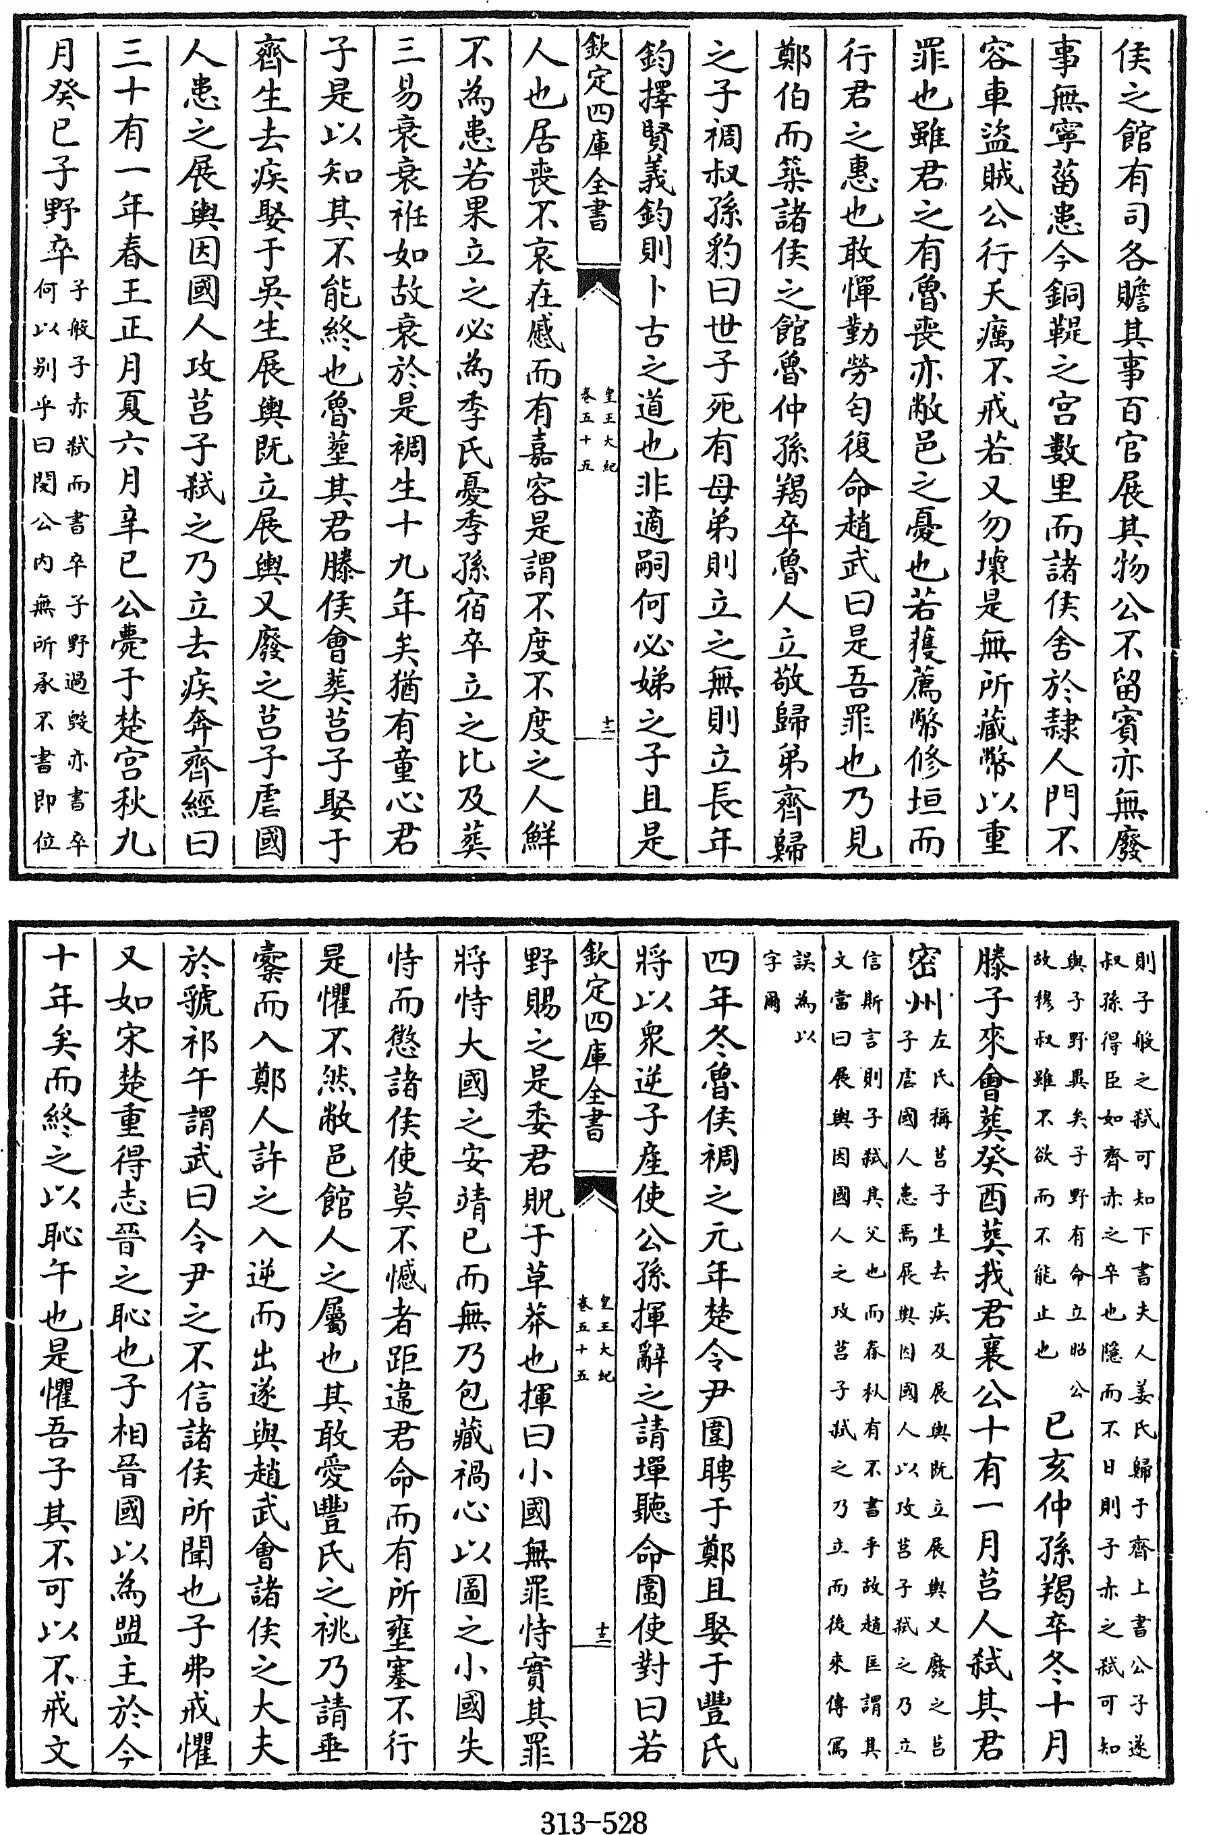 侯之館有司各瞻其事百官展其物公不留賓亦無廢
事無寧菑患今銅鞮之宫數里而諸侯舍於隷人門不
容車盜賊公行天癘不戒若又勿壞是無所藏幣以重
罪也雖君之有魯喪亦敝邑之憂也若獲薦幣修垣而
行君之惠也敢憚勤勞匄復命趙武曰是吾罪也乃見
鄭伯而築諸侯之館魯仲孫羯卒魯人立敬歸弟齊歸
之子裯叔孫豹曰世子死有母弟則立之無則立長年
鈞擇賢義鈞則卜古之道也非適嗣何必娣之子且是
欽定四庫全書
皇王大紀
卷五十五
十二
人也居喪不哀在慼而有嘉容是謂不度不度之人鮮
不為患若果立之必為季氏憂季孫宿卒立之比及葬
三易衰衰袵如故衰於是裯生十九年矣猶有童心君
子是以知其不能終也魯塟其君滕侯會葬莒子娶于
齊生去疾娶于吳生展輿既立展輿又廢之莒子虐國
人患之展輿因國人攻莒子弑之乃立去疾奔齊經曰
三十有一年春王正月夏六月辛巳公薨于楚宫秋九
月癸巳子野卒子般子赤弑而書卒子野過毁亦書卒
何以别乎曰閔公内無所承不書即位
則子般之弑可知下書夫人姜氏歸于齊上書公子遂
叔孫得臣如齊赤之卒也隱而不日則子赤之弑可知
與子野異矣子野有命立昭公
故穆叔雖不欲而不能止也己亥仲孫羯卒冬十月
滕子來會葬癸酉葬我君襄公十有一月莒人弑其君
密州左氏稱莒子生去疾及展輿既立展輿又廢之莒
子虐國人患焉展輿因國人以攻莒子弑之乃立
信斯言則子弑其父也而春秋有不書乎故趙匡謂其
文當曰展輿因國人之攻莒子弑之乃立而後來傳寫
誤為以
字爾
四年冬魯侯裯之元年楚令尹圍聘于鄭且娶于豐氏
將以衆逆子產使公孫揮辭之請墠聽命圍使對曰若
欽定四庫全書
皇王大紀
卷五十五
十三
野賜之是委君貺于草莽也揮曰小國無罪恃實其罪
將恃大國之安靖已而無乃包藏禍心以圖之小國失
恃而懲諸侯使莫不憾者距違君命而有所壅塞不行
是懼不然敝邑館人之屬也其敢愛豐氏之祧乃請垂
櫜而入鄭人許之入逆而出遂與趙武會諸侯之大夫
於虢祁午謂武曰令尹之不信諸侯所聞也子弗戒懼
又如宋楚重得志晉之恥也子相晉國以為盟主於今
十年矣而終之以恥午也是懼吾子其不可以不戒文
313-528